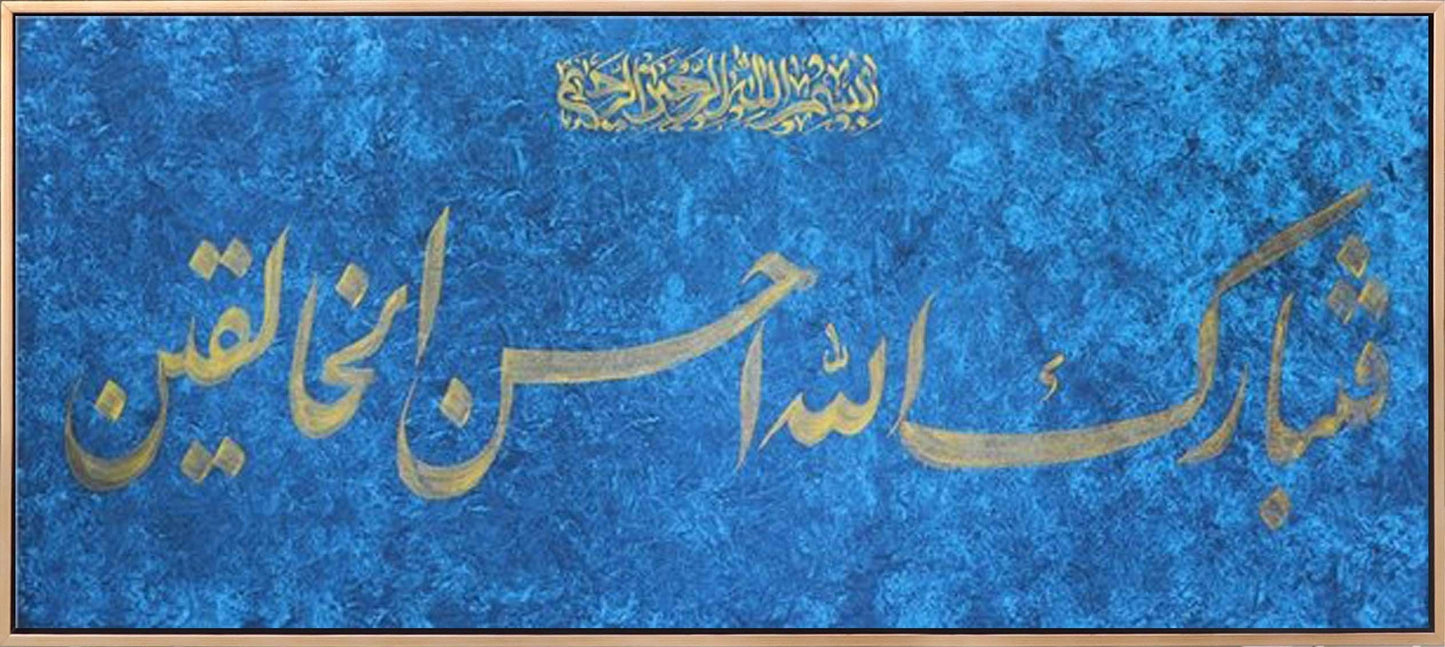 بسم الله الرحمن الرحيم
فتبارك الله احسن الخالقين